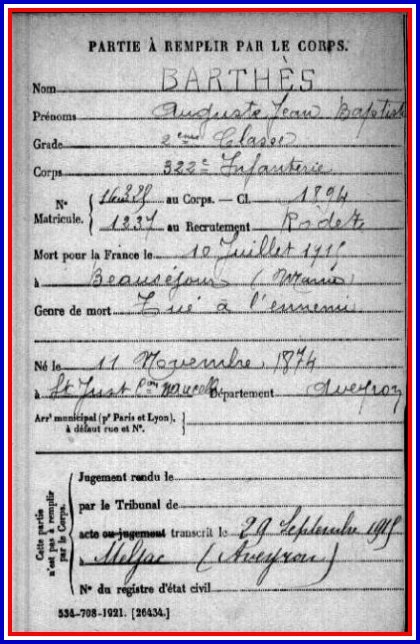 PARTIE À REMPLIR PAR LE CORPS.
Nom BARTHÈS
Prénoms Auguste Jean Baptiste
Grade 2eme Classe
Corps 322e Infanterie
N° au Corps. — Cl. 1894
Matricule. 1237 au Recrutement Rodez
Mort pour la France le 10 Juillet 1915
à Beauséjour (Marne)
Genre de mort Tué à l'ennemi
Né le 11 Novembre 1874
à St Just Département Aveyron
Arrt municipal (pr Paris et Lyon),
à défaut rue et N°.
Cette partie n'est pas à remplir par le Corps.
Jugement rendu le
par le Tribunal de
acte ou jugement transcrit le 29 Septembre 1915
à Meljac (Aveyron)
N° du registre d'état civil
534-708-1921. [26434.]